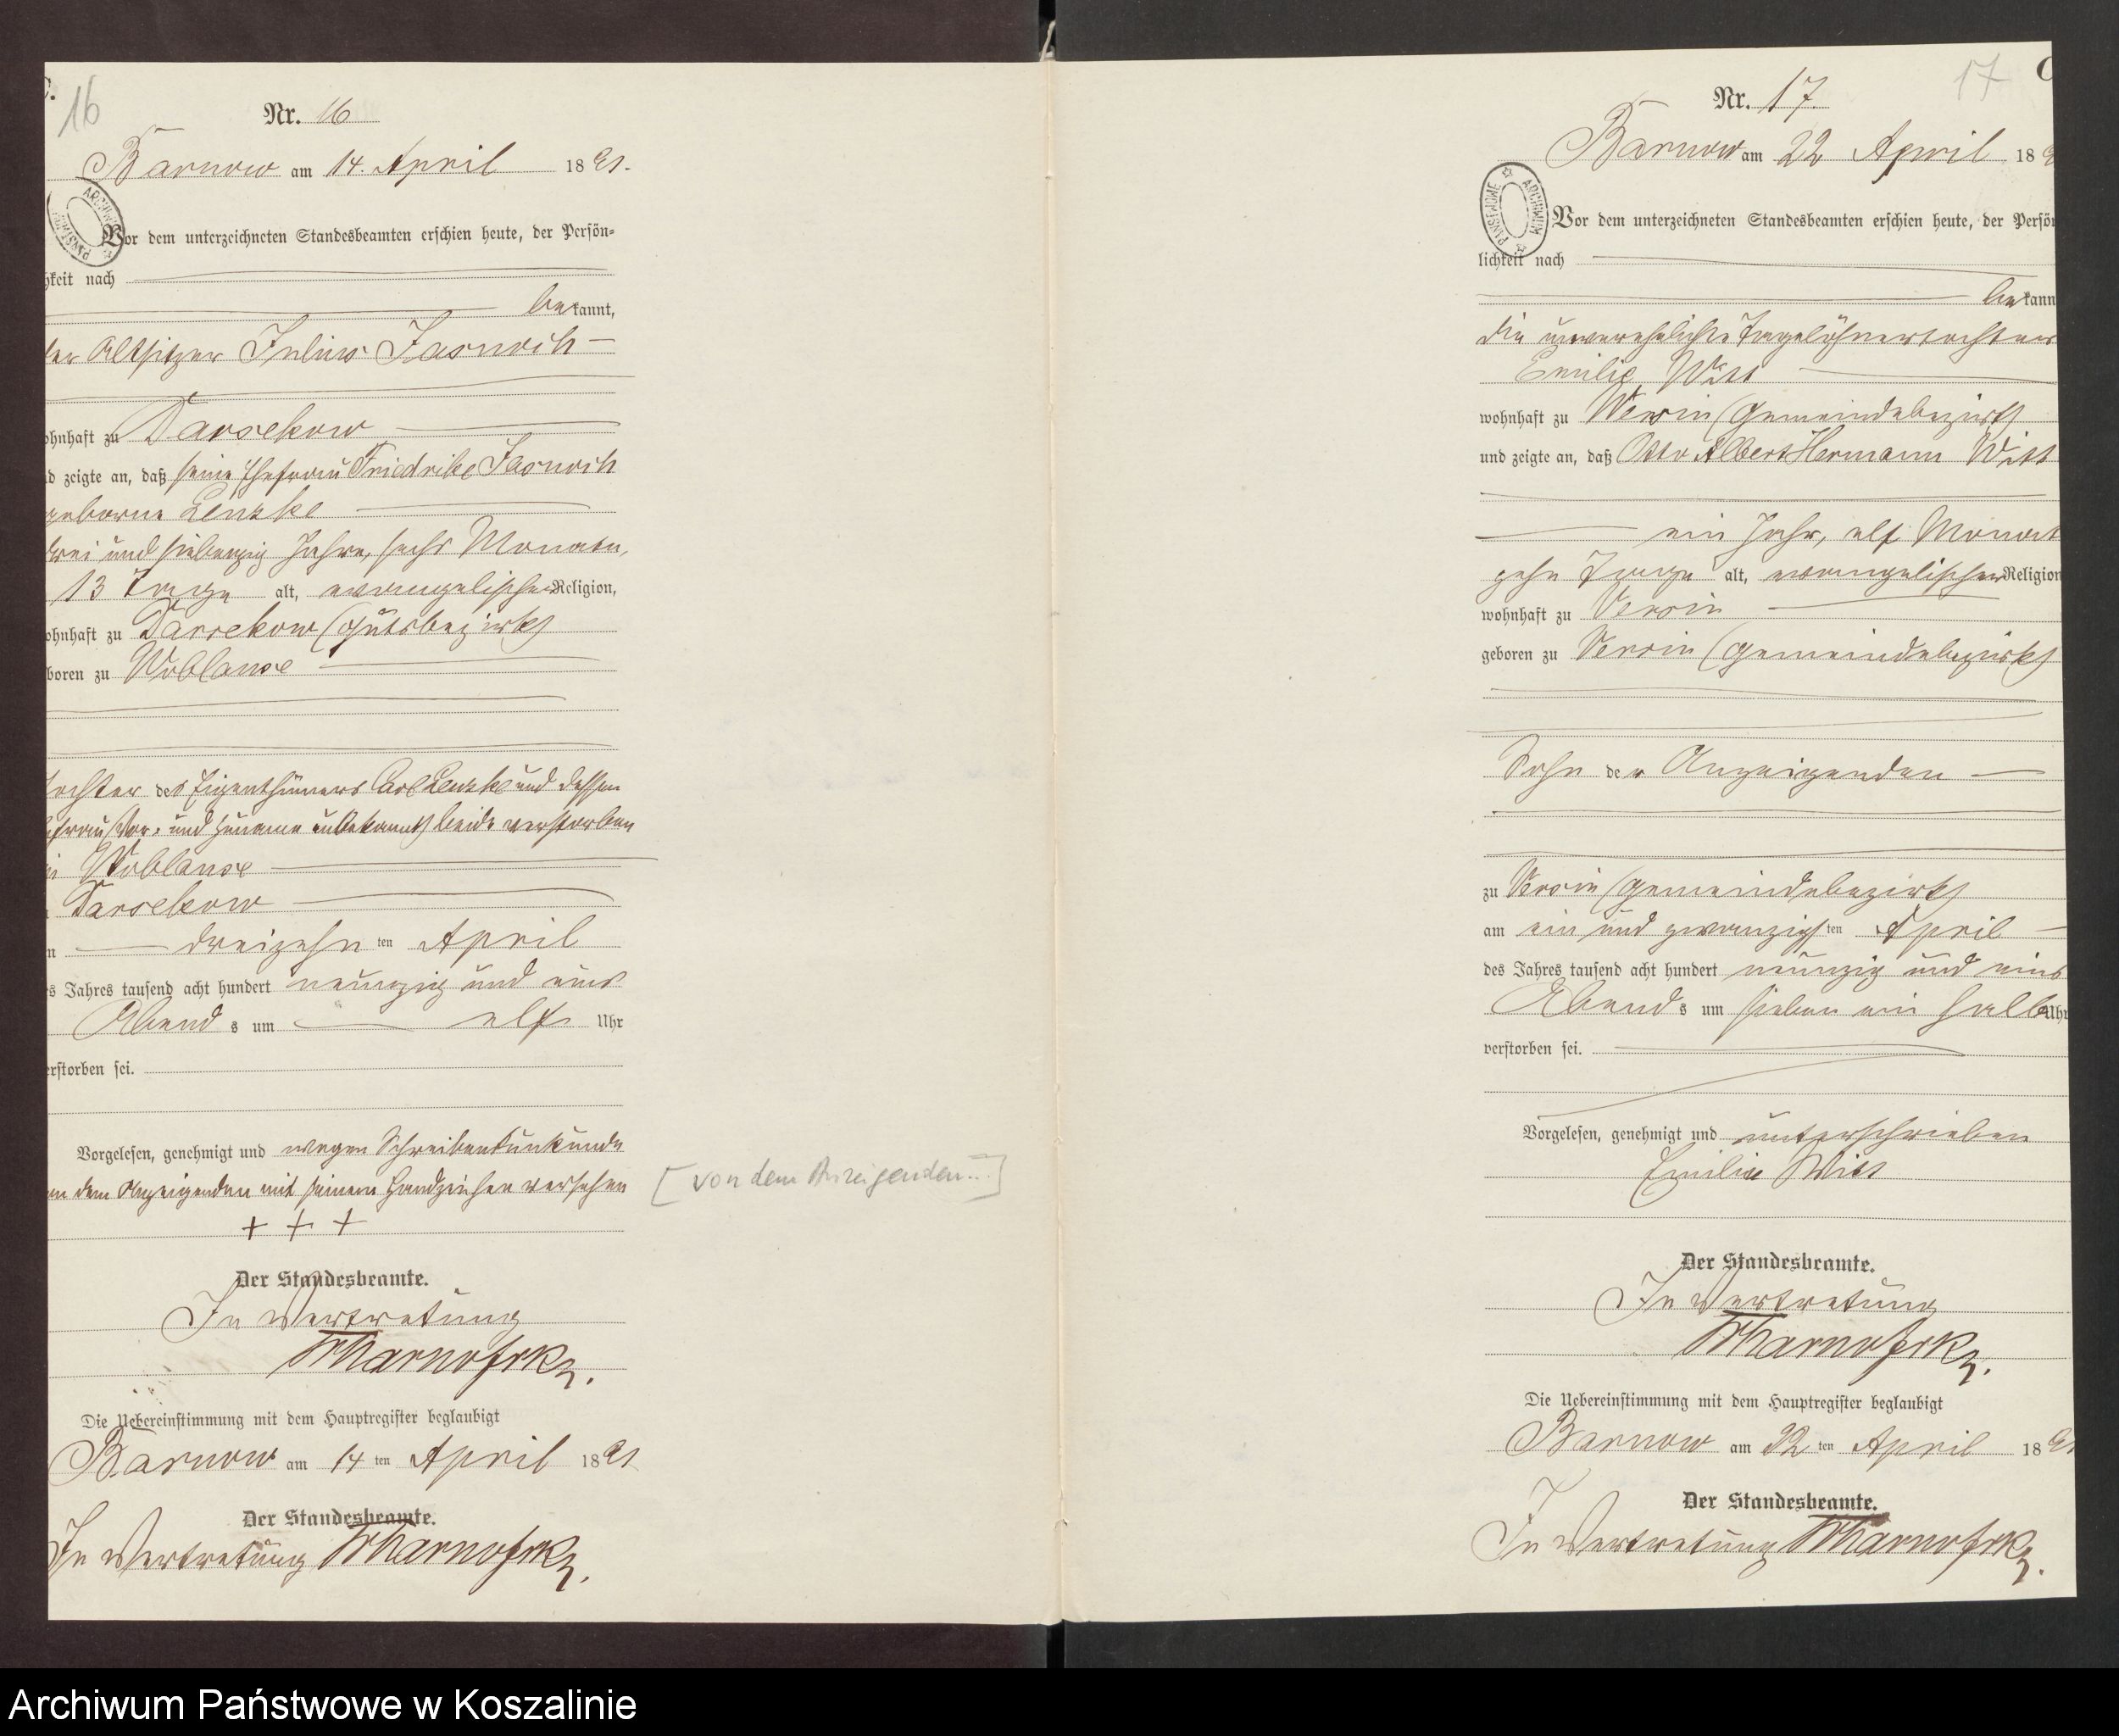 C.
16
Nr. 16
Barnow am 14. April 1891.
ARCHIWUM PAŃSTWOWE
Vor dem unterzeichneten Standesbeamten erschien heute, der Persön=
hkeit nach
bekannt,
der Altsitzer Julius
ohnhaft zu Darsekow
d zeigte an, daß seine Ehefrau Friedrike
geborne Lenzke
drei und siebenzig Jahre, sechs Monate,
13 Tage alt, evangelischer Religion,
ohnhaft zu Darsekow (Gutsbezirk)
boren zu Woblanse
Tochter des Eigenthümers Carl Lenzke und dessen
efrau (Vor- und Zuname unbekannt) beide verstorben
Woblanse
Darsekow
n dreizehnten April
s Jahres tausend acht hundert neunzig und eins
Abends um elf Uhr
erstorben sei.
Vorgelesen, genehmigt und wegen Schreibensunkunde
on dem Anzeigenden mit seinem Handzeichen versehen
[von dem Anzeigenden...]
+ + +
Der Standesbeamte.
In Vertretung
Die Uebereinstimmung mit dem Hauptregister beglaubigt
Barnow am 14ten April 1891
Der Standesbeamte.
In Vertretung
17
C
Nr. 17.
Barnow am 22 April 189
ARCHIWUM PAŃSTWOWE
Vor dem unterzeichneten Standesbeamten erschien heute, der Persön
lichkeit nach
bekann
die unverehelichte Tagelöhnertochter
Emilie Witt
wohnhaft zu Versin (Gemeindebezirk)
und zeigte an, daß Otto Albert Hermann Witt
ein Jahr, elf Monat
zehn Tage alt, evangelischer Religion
wohnhaft zu Versin
geboren zu Versin (Gemeindebezirk)
Sohn der Anzeigenden
zu Versin (Gemeindebezirk)
am ein und zwanzigsten April
des Jahres tausend acht hundert neunzig und eins
Abends um sieben ein halb Uhr
verstorben sei.
Vorgelesen, genehmigt und unterschrieben
Emilie Witt
Der Standesbeamte.
In Vertretung
Die Uebereinstimmung mit dem Hauptregister beglaubigt
Barnow am 22ten April 1891
Der Standesbeamte.
In Vertretung
Archiwum Państwowe w Koszalinie